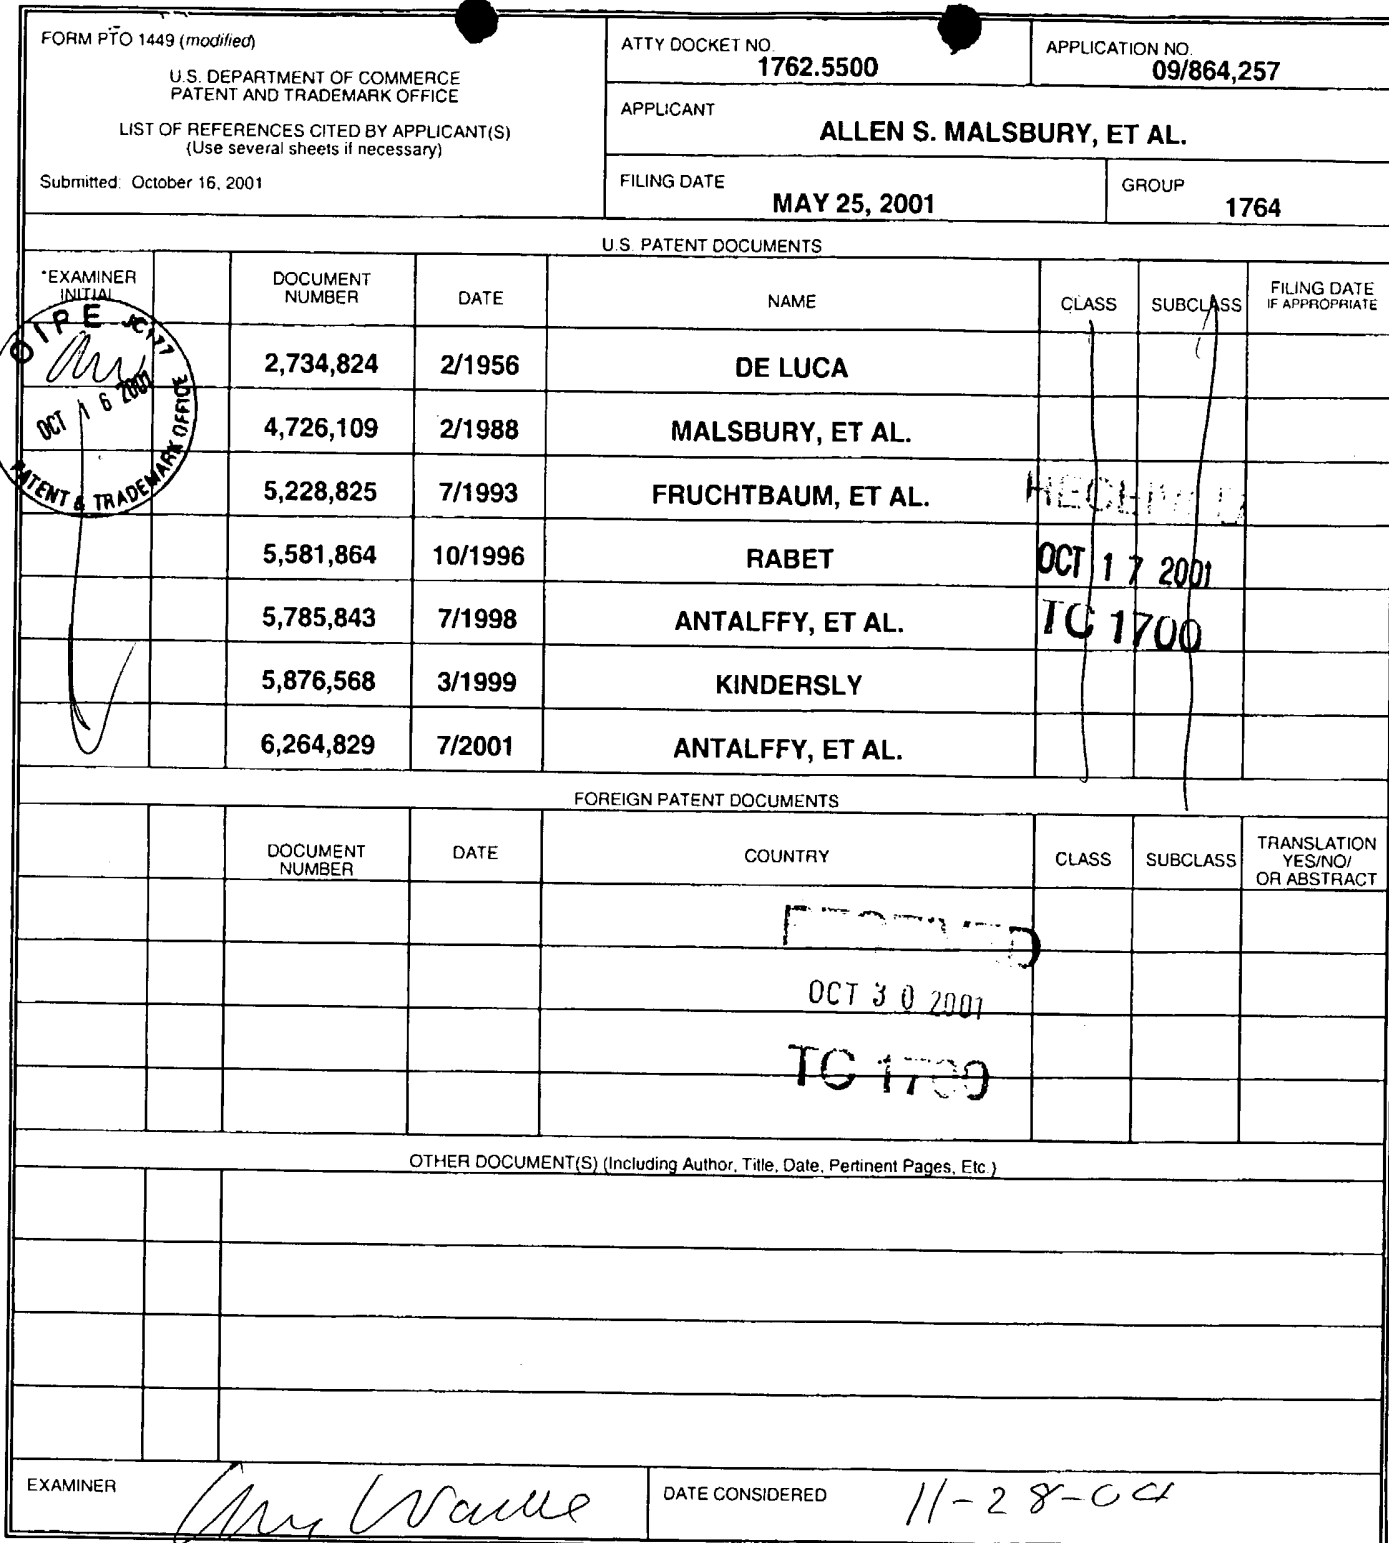 FORM PTO 1449 (modified)
U.S. DEPARTMENT OF COMMERCE
PATENT AND TRADEMARK OFFICE
LIST OF REFERENCES CITED BY APPLICANT(S)
(Use several sheets if necessary)
Submitted: October 16, 2001
ATTY DOCKET NO.
1762.5500
APPLICATION NO.
09/864,257
APPLICANT
ALLEN S. MALSBURY, ET AL.
FILING DATE
MAY 25, 2001
GROUP
1764
U.S. PATENT DOCUMENTS
*EXAMINER INITIAL
DOCUMENT NUMBER
DATE
NAME
CLASS
SUBCLASS
FILING DATE IF APPROPRIATE
OIPE JC177
OCT 16 2001
PATENT & TRADEMARK OFFICE
2,734,824 2/1956 DE LUCA
4,726,109 2/1988 MALSBURY, ET AL.
5,228,825 7/1993 FRUCHTBAUM, ET AL.
5,581,864 10/1996 RABET
OCT 17 2001
5,785,843 7/1998 ANTALFFY, ET AL.
TC 1700
5,876,568 3/1999 KINDERSLY
6,264,829 7/2001 ANTALFFY, ET AL.
FOREIGN PATENT DOCUMENTS
DOCUMENT NUMBER
DATE
COUNTRY
CLASS
SUBCLASS
TRANSLATION YES/NO/ OR ABSTRACT
OCT 30 2001
TC 1700
OTHER DOCUMENT(S) (Including Author, Title, Date, Pertinent Pages, Etc.)
EXAMINER
DATE CONSIDERED 11-28-04